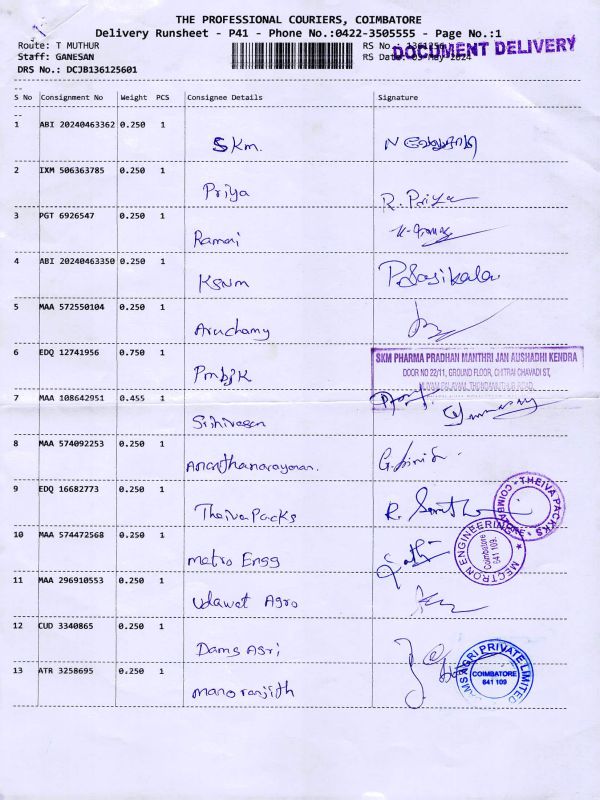 THE PROFESSIONAL COURIERS, COIMBATORE
Delivery Runsheet - P41 - Phone No.:0422-3505555 - Page No.:1
Route: T MUTHUR
RS No.:
DOCUMENT DELIVERY
Staff: GANESAN
RS Date: 03-May-2024
DRS No.: DCJB136125601
--
S No Consignment No Weight PCS Consignee Details Signature
--
1 ABI 20240463362 0.250 1 SKm.
2 IXM 506363785 0.250 1 Priya R. Priya
3 PGT 6926547 0.250 1 Ramani
4 ABI 20240463350 0.250 1 KSNM P. Sasikala
5 MAA 572550104 0.250 1 Aruchamy
6 EDQ 12741956 0.750 1 PmbJK
SKM PHARMA PRADHAN MANTHRI JAN AUSHADHI KENDRA
DOOR NO 22/11, GROUND FLOOR, CHITRAI CHAVADI ST,
7 MAA 108642951 0.455 1 Srinivasan
8 MAA 574092253 0.250 1 Ananthanarayanan.
9 EDQ 16682773 0.250 1 Theiva Packs
THEIVA PACKKS
10 MAA 574472568 0.250 1 metro Engg
MECTRON ENGINEERING
Coimbatore
641 109.
11 MAA 296910553 0.250 1 Udawat Agro
12 CUD 3340865 0.250 1 Dams Agri
AGRI PRIVATE LIMITED
COIMBATORE
641 109
13 ATR 3258695 0.250 1 manoranjith